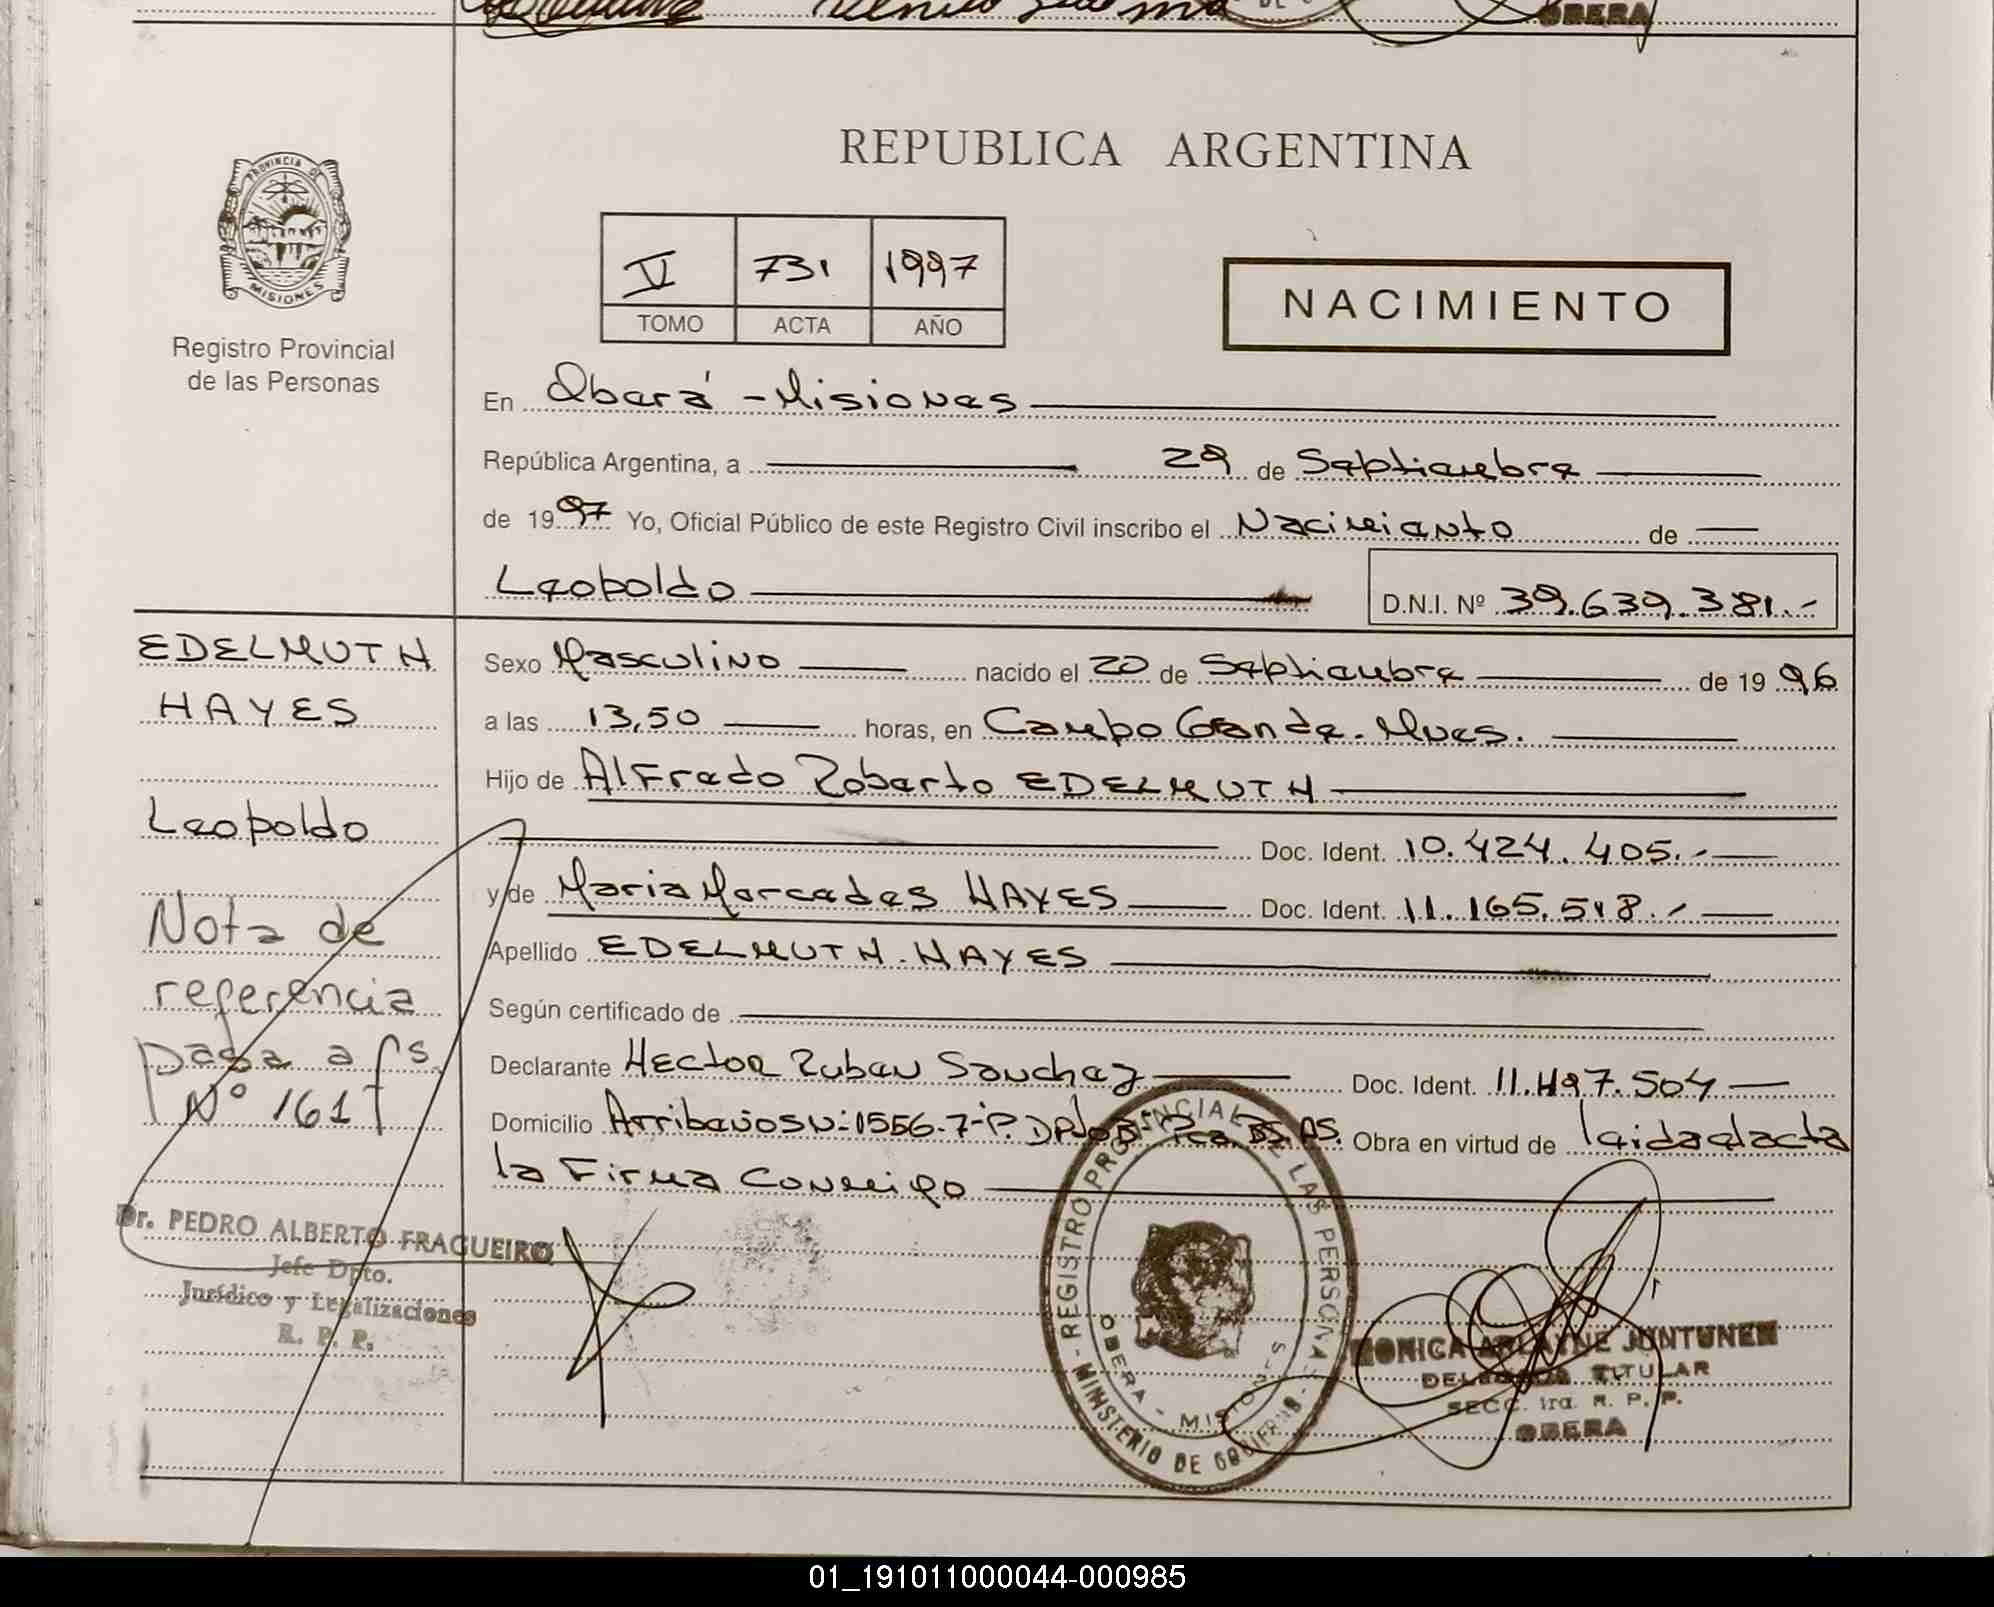 OBERA
PROVINCIA DE
MISIONES
Registro Provincial
de las Personas
REPUBLICA ARGENTINA
V 731 1997
TOMO ACTA AÑO
NACIMIENTO
En Oberá - Misiones
República Argentina, a 29 de Septiembre
de 1997 Yo, Oficial Público de este Registro Civil inscribo el Nacimiento de
Leopoldo D.N.I. Nº 39.639.381.-
EDELMUTH
HAYES
Leopoldo
Nota de
referencia
pasa a fs.
Nº 161
Dr. PEDRO ALBERTO FRAGUEIRO
Jefe Dpto.
Jurídico y Legalizaciones
R. P. P.
Sexo Masculino nacido el 20 de Septiembre de 1996
a las 13,50 horas, en Campo Grande. Mnes.
Hijo de Alfredo Roberto EDELMUTH
Doc. Ident. 10.424.405.-
y de Maria Mercedes HAYES Doc. Ident. 11.165.518.-
Apellido EDELMUTH. HAYES
Según certificado de
Declarante Hector Ruben Sanchez Doc. Ident. 11.497.504
Domicilio Arribeños Nº 1556. 7º P. BS. AS. Obra en virtud de leida el acta
la Firma Conmigo
REGISTRO PROVINCIAL DE LAS PERSONAS - MINISTERIO DE GOBIERNO -
OBERA - MISIONES
MONICA ARLAYNE JUNTUNEN
DELEGADA TITULAR
SECC. 1ra. R. P. P.
OBERA
01_191011000044-000985